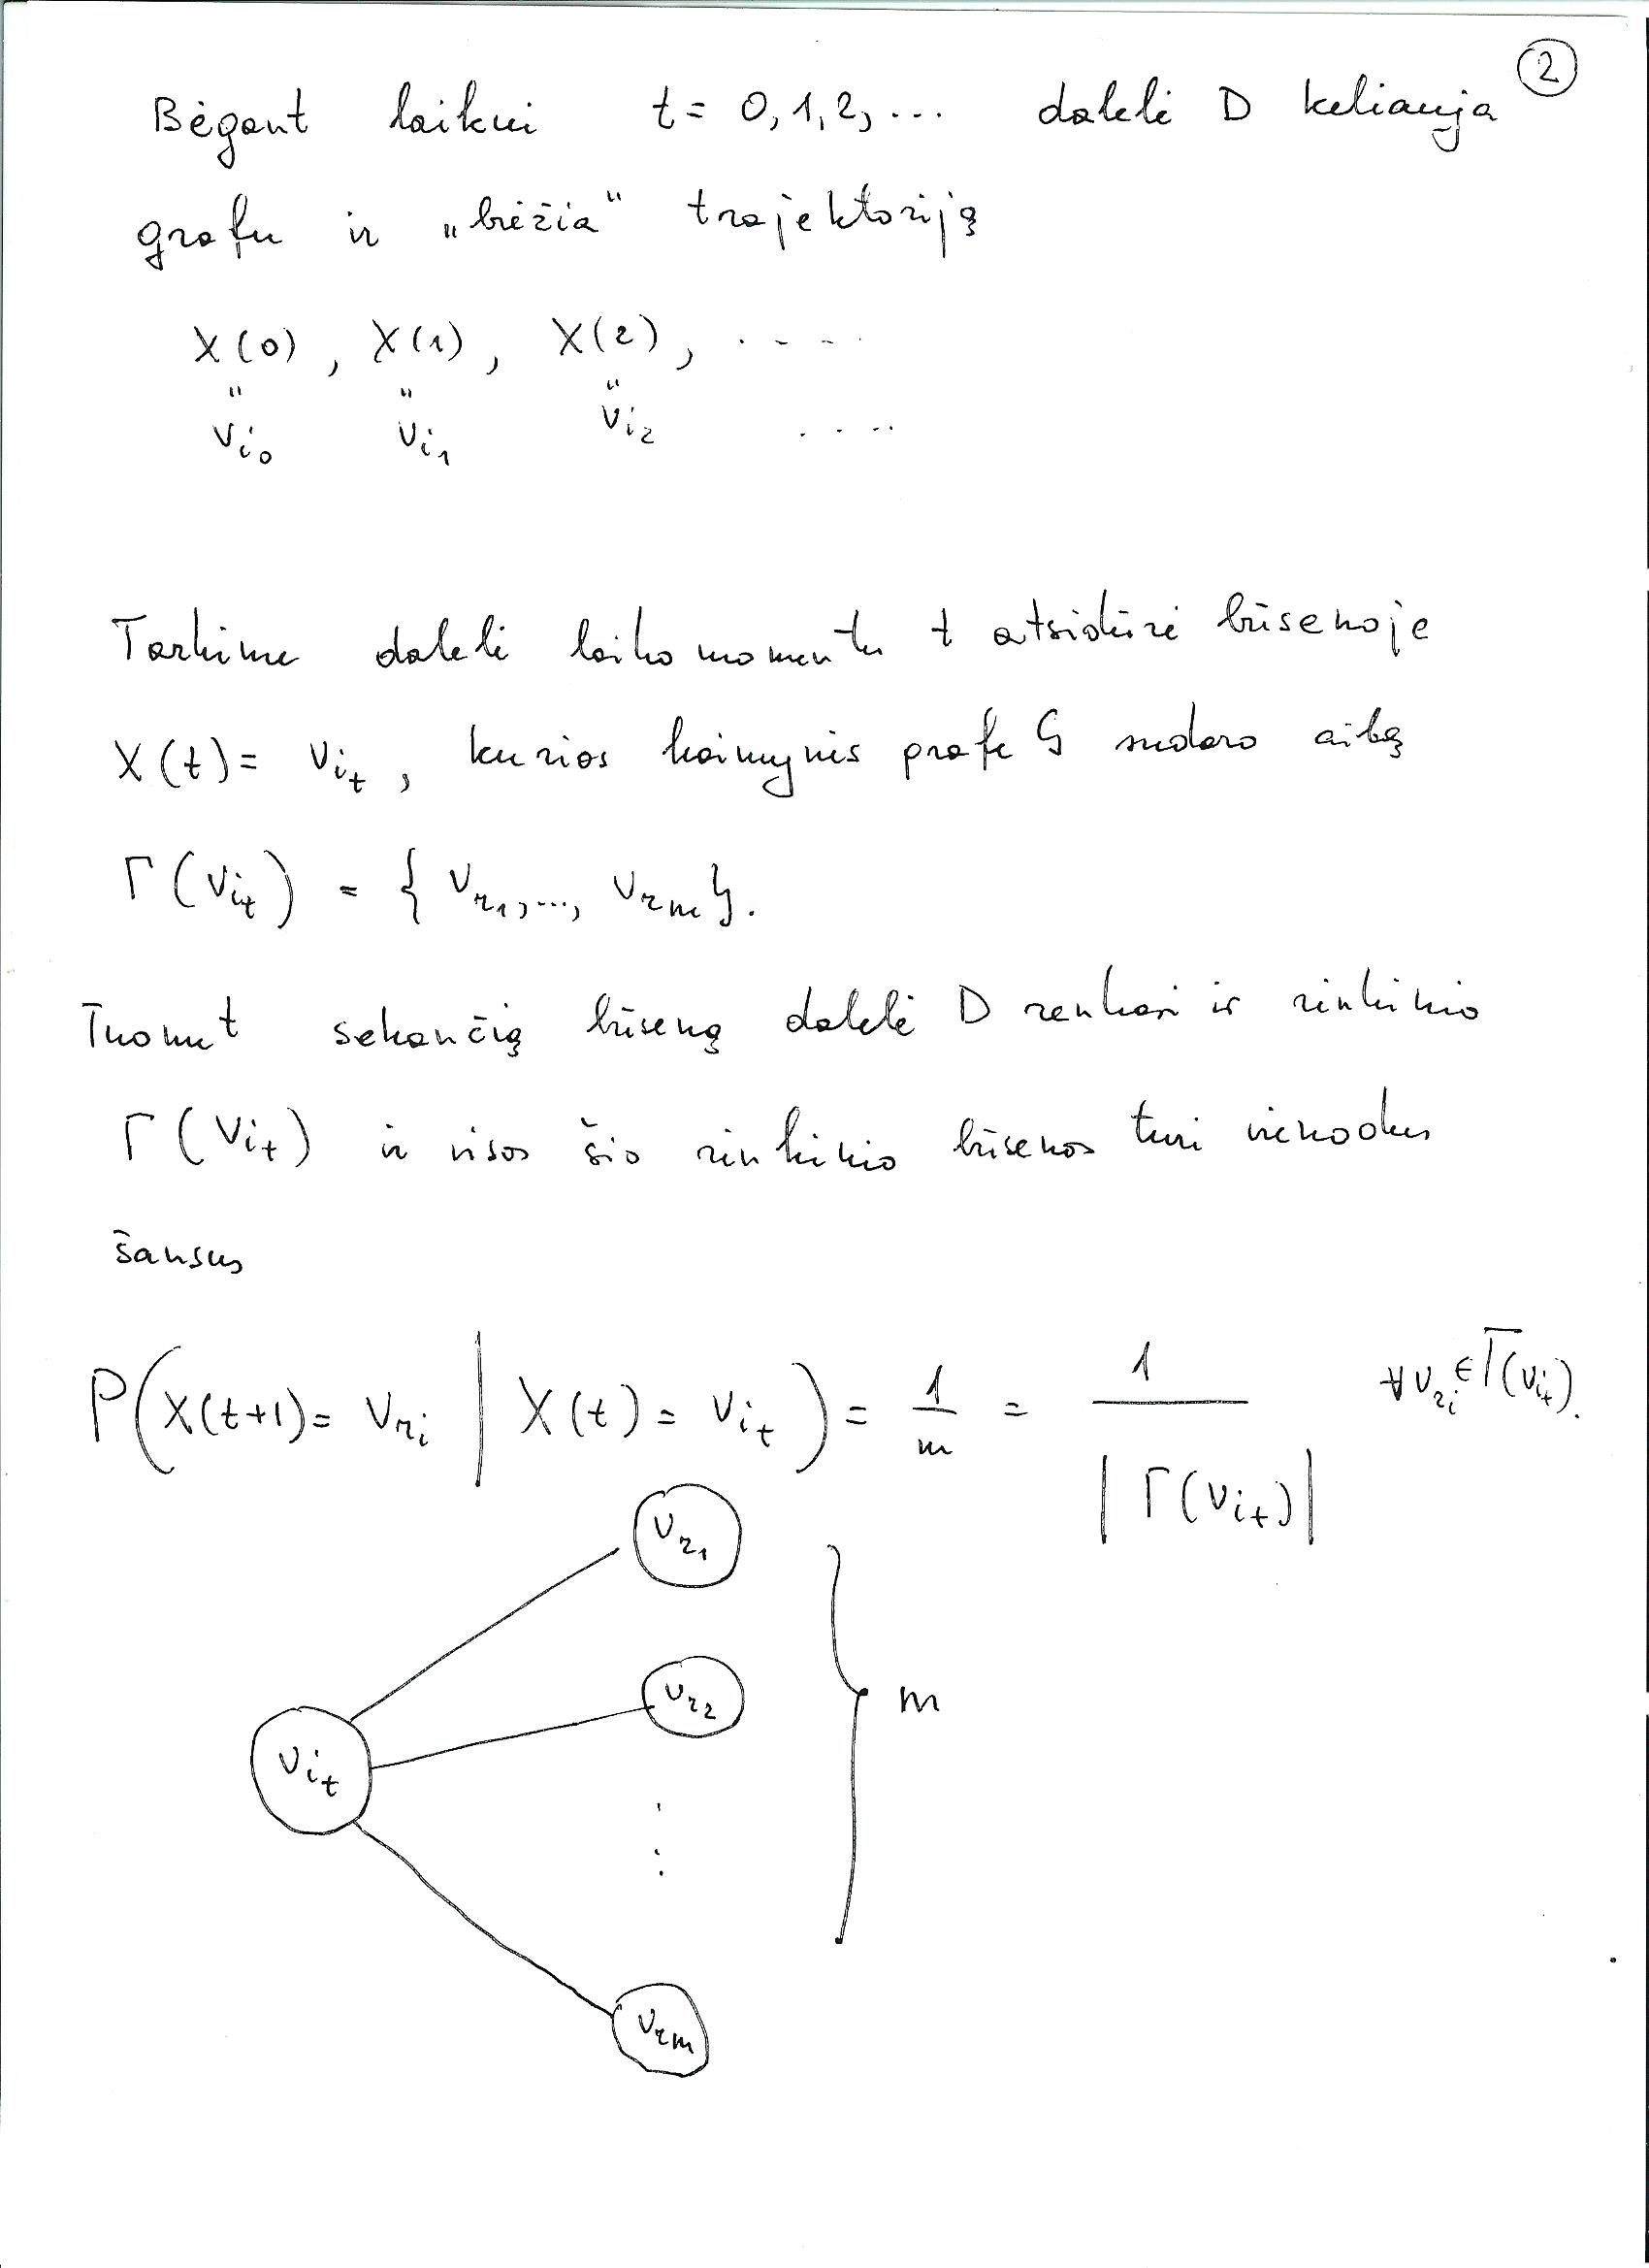 ②
Bėgant laikui t = 0,1,2,... dalelė D keliauja
grafu ir „brėžia" trajektoriją
X(0), X(1), X(2), .....
" " "
v_{i_0} v_{i_1} v_{i_2} ....
Tarkime dalelė laiko momentu t atsidūrė būsenoje
X(t) = v_{i_t}, kurios kaimynės grafe G sudaro aibę
Γ(v_{i_t}) = { v_{r_1},..., v_{r_m} }.
Tuomet sekančią būseną dalelė D renkasi iš rinkinio
Γ(v_{i_t}) ir visos šio rinkinio būsenos turi vienodus
šansus
P(X(t+1) = v_{r_i} | X(t) = v_{i_t}) = 1/m = 1/|Γ(v_{i_t})| ∀ v_{r_i} ∈ Γ(v_{i_t}).
v_{r_1}
v_{r_2}
m
v_{i_t}
⋮
v_{r_m}